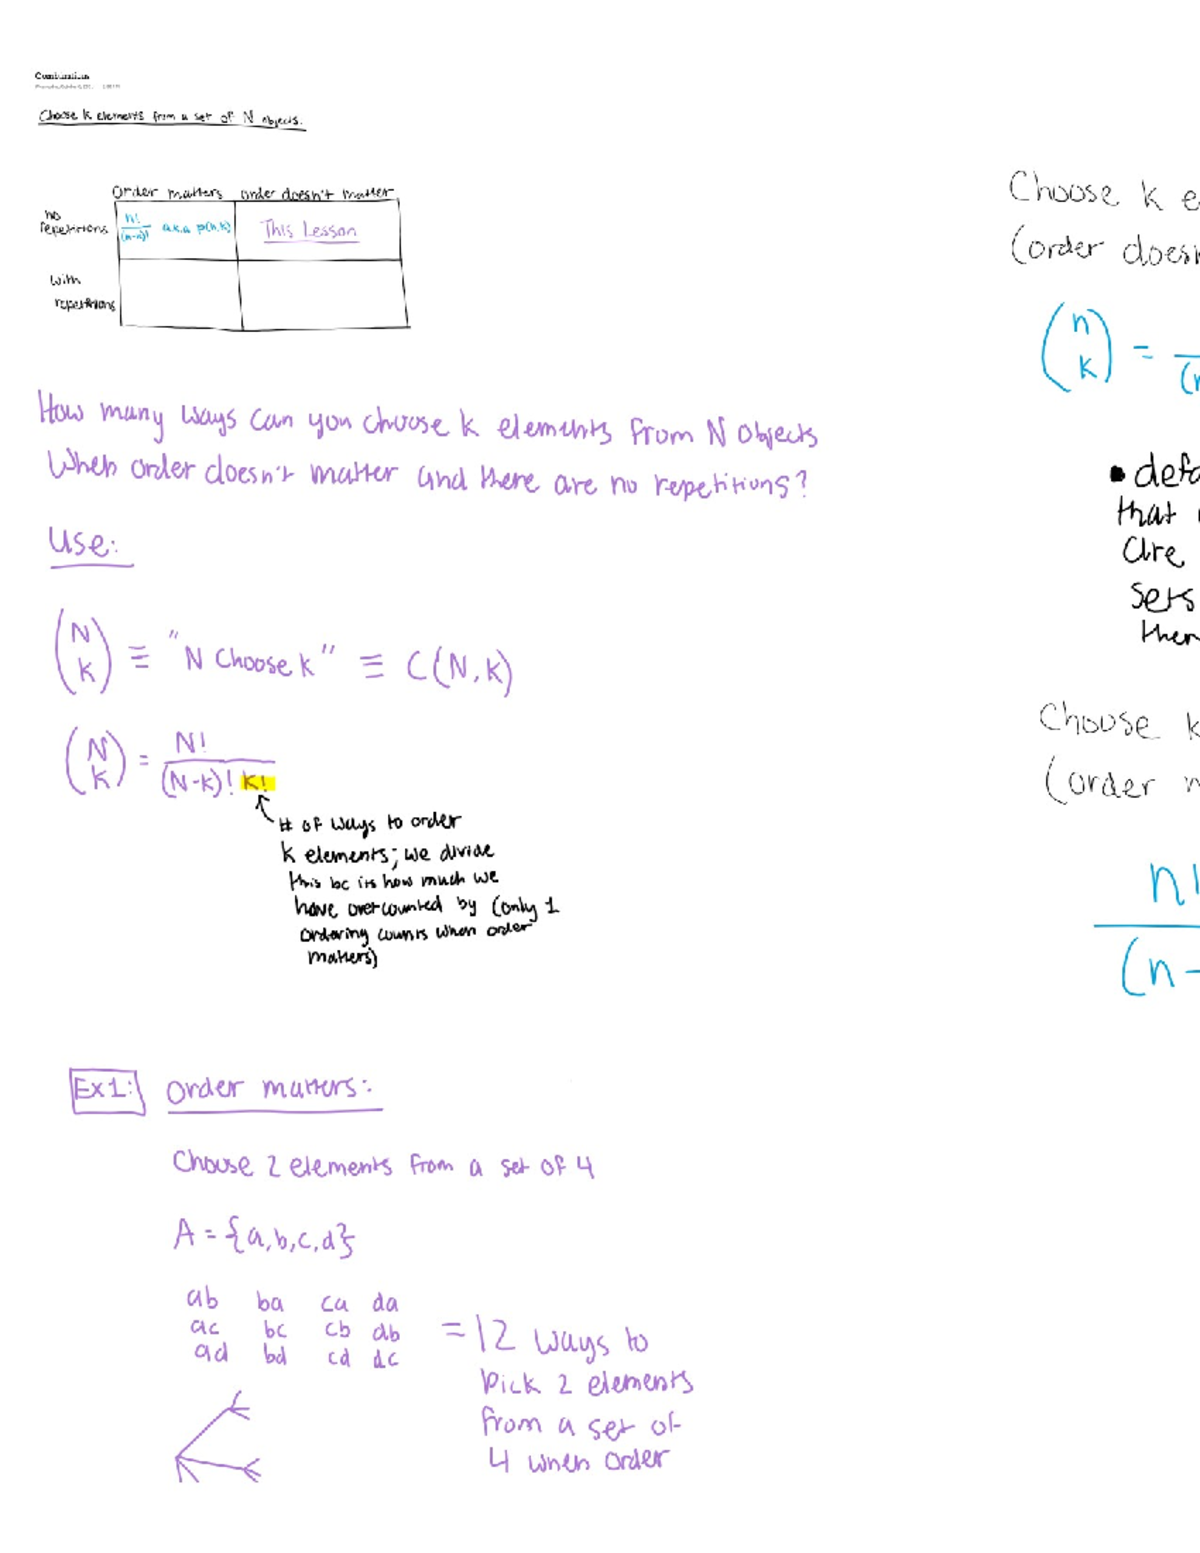 Combinations
Choose k elements from a set of N objects.
Order matters order doesn't matter
no repetitions
n!/(n-n)! a.k.a p(n,k)
This Lesson
with repetitions
How many ways can you choose k elements from N objects
When order doesn't matter and there are no repetitions?
Use:
(N k) ≡ "N Choose k" ≡ C(N,K)
(N k) = N!/(N-k)! k!
# of ways to order
k elements; we divide
this bc its how much we
have overcounted by (only 1
ordering counts when order
matters)
Ex1: Order matters:
Choose 2 elements from a set of 4
A = {a,b,c,d}
ab ba ca da
ac bc cb db
ad bd cd dc
= 12 ways to
pick 2 elements
from a set of
4 when order
Choose k e
(order doesn
(n k) =
(n
• defa
that
are
sets
then
Choose k
(order n
n!
(n-